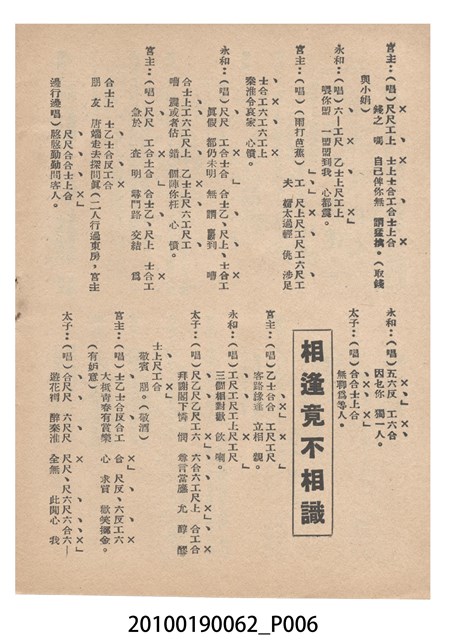 宮主：（唱）尺尺工上 士上士合工合士上合
錢之 嘅 自己俾你無 謂猛擒。（取錢
與小娟）
永和：（唱）六—工尺 乙士上尺工上
喂你盟 一盟盟到我 心都震。
宮主：（唱）（雨打芭蕉） 工 上尺工尺工六尺工
夫 太過輕 佻 涉足
士合工六工六工上
秦淮令哀家 心憤。
永和：（唱）尺尺 工合士合 合士乙、尺上、士合工
眞假 都仍未明 無 謂 到 嘈
合士上工六工尺工 上尺乙士上尺六工
嘈 或者 錯 個陣你枉 心 憤。
宮主：（唱）尺尺 工合士合 合士乙、尺上 士合工
急於 查 明 尋門路 交結 爲
合士上 士乙士合反工合
朋 友 走去探問眞（二人行過東房，宮主
尺尺合合士上合
邊行邊唱）慇慇勤勤問客人。
相逢竟不相識
永和：（唱）五六反 工六合
因乜你 獨一人。
太子：（唱）合合士上合
無聊爲等人。
宮主：（唱）乙士合士 工尺工尺
客路緣進 立相 親。
永和：（唱）工尺工尺工上尺工尺
三個相對歡 飲 喇。
太子：（唱）尺乙尺乙尺工 六合六工尺上 合工合
拜謝閣下情 憫 尊言當盛 尤 醇醪
士上尺工合
敬賓 朋。（敬酒）
宮主：（唱）士乙士合反合工 合 尺反、六反工六
大抵靑春有賞樂 心 求賞 歡笑擲金。
（有妒意）
太子：（唱）合尺尺 六尺尺 尺尺、尺六尺六合六—
遊花柳 醉秦淮 全無 此閒心 我
20100190062_P006